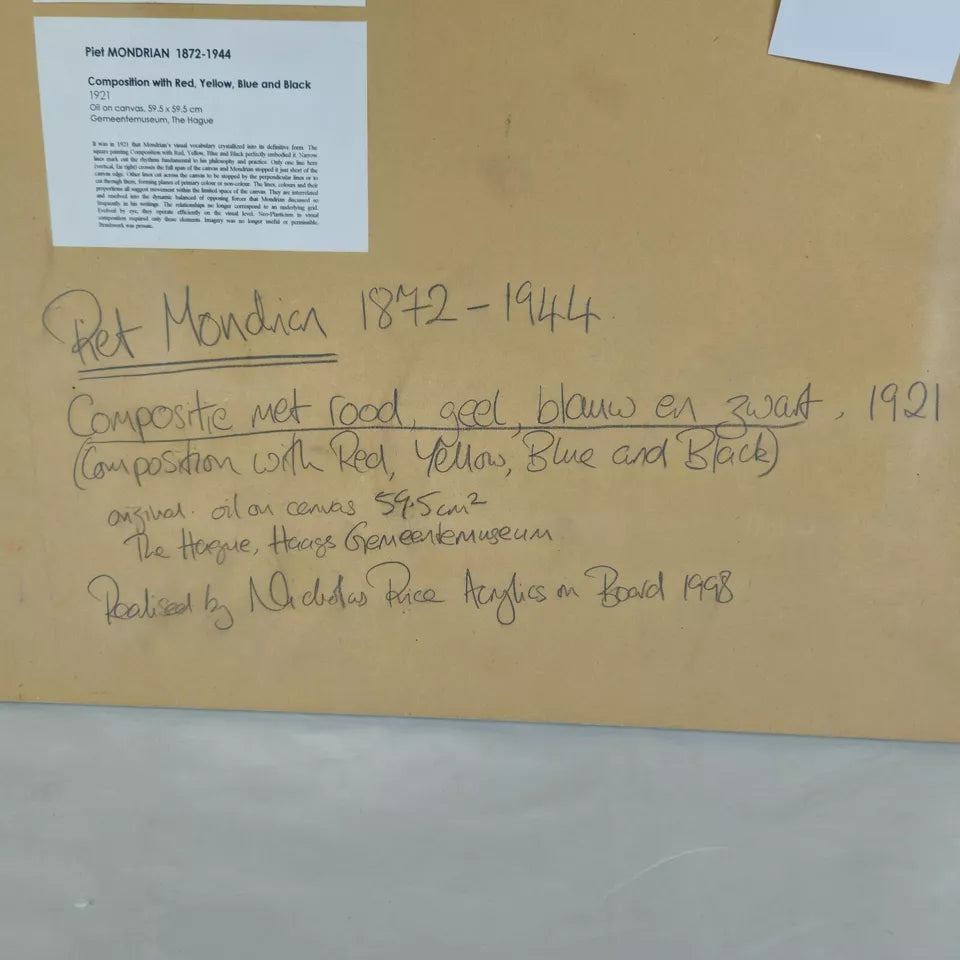 Piet MONDRIAN 1872-1944
Composition with Red, Yellow, Blue and Black
1921
Oil on canvas, 59.5 x 59.5 cm
Gemeentemuseum, The Hague
It was in 1921 that Mondrian's visual vocabulary crystallized into its definitive form. The
square painting Composition with Red, Yellow, Blue and Black perfectly embodied it. Narrow
lines mark out the rhythms fundamental to his philosophy and practice. Only one line here
(vertical, far right) crosses the full span of the canvas and Mondrian stopped it just short of the
canvas edge. Other lines cut across the canvas to be stopped by the perpendicular lines or to
cut through them, forming planes of primary colour or non-colour. The lines, colours and their
proportions all suggest movement within the limited space of the canvas. They are interrelated
and resolved into the dynamic balanced of opposing forces that Mondrian discussed so
frequently in his writings. The relationships no longer correspond to an underlying grid.
Evolved by eye, they operate efficiently on the visual level. Neo-Plasticism in visual
composition required only these elements. Imagery was no longer useful or permissible.
Brushwork was prosaic.
Piet Mondrian 1872-1944.
Compositie met rood, geel, blauw en zwart, 1921
(Composition with Red, Yellow, Blue and Black)
original. oil on canvas 59.5cm²
The Hague, Haags Gemeentemuseum
Realised by Nicholas Price Acrylics on Board 1998